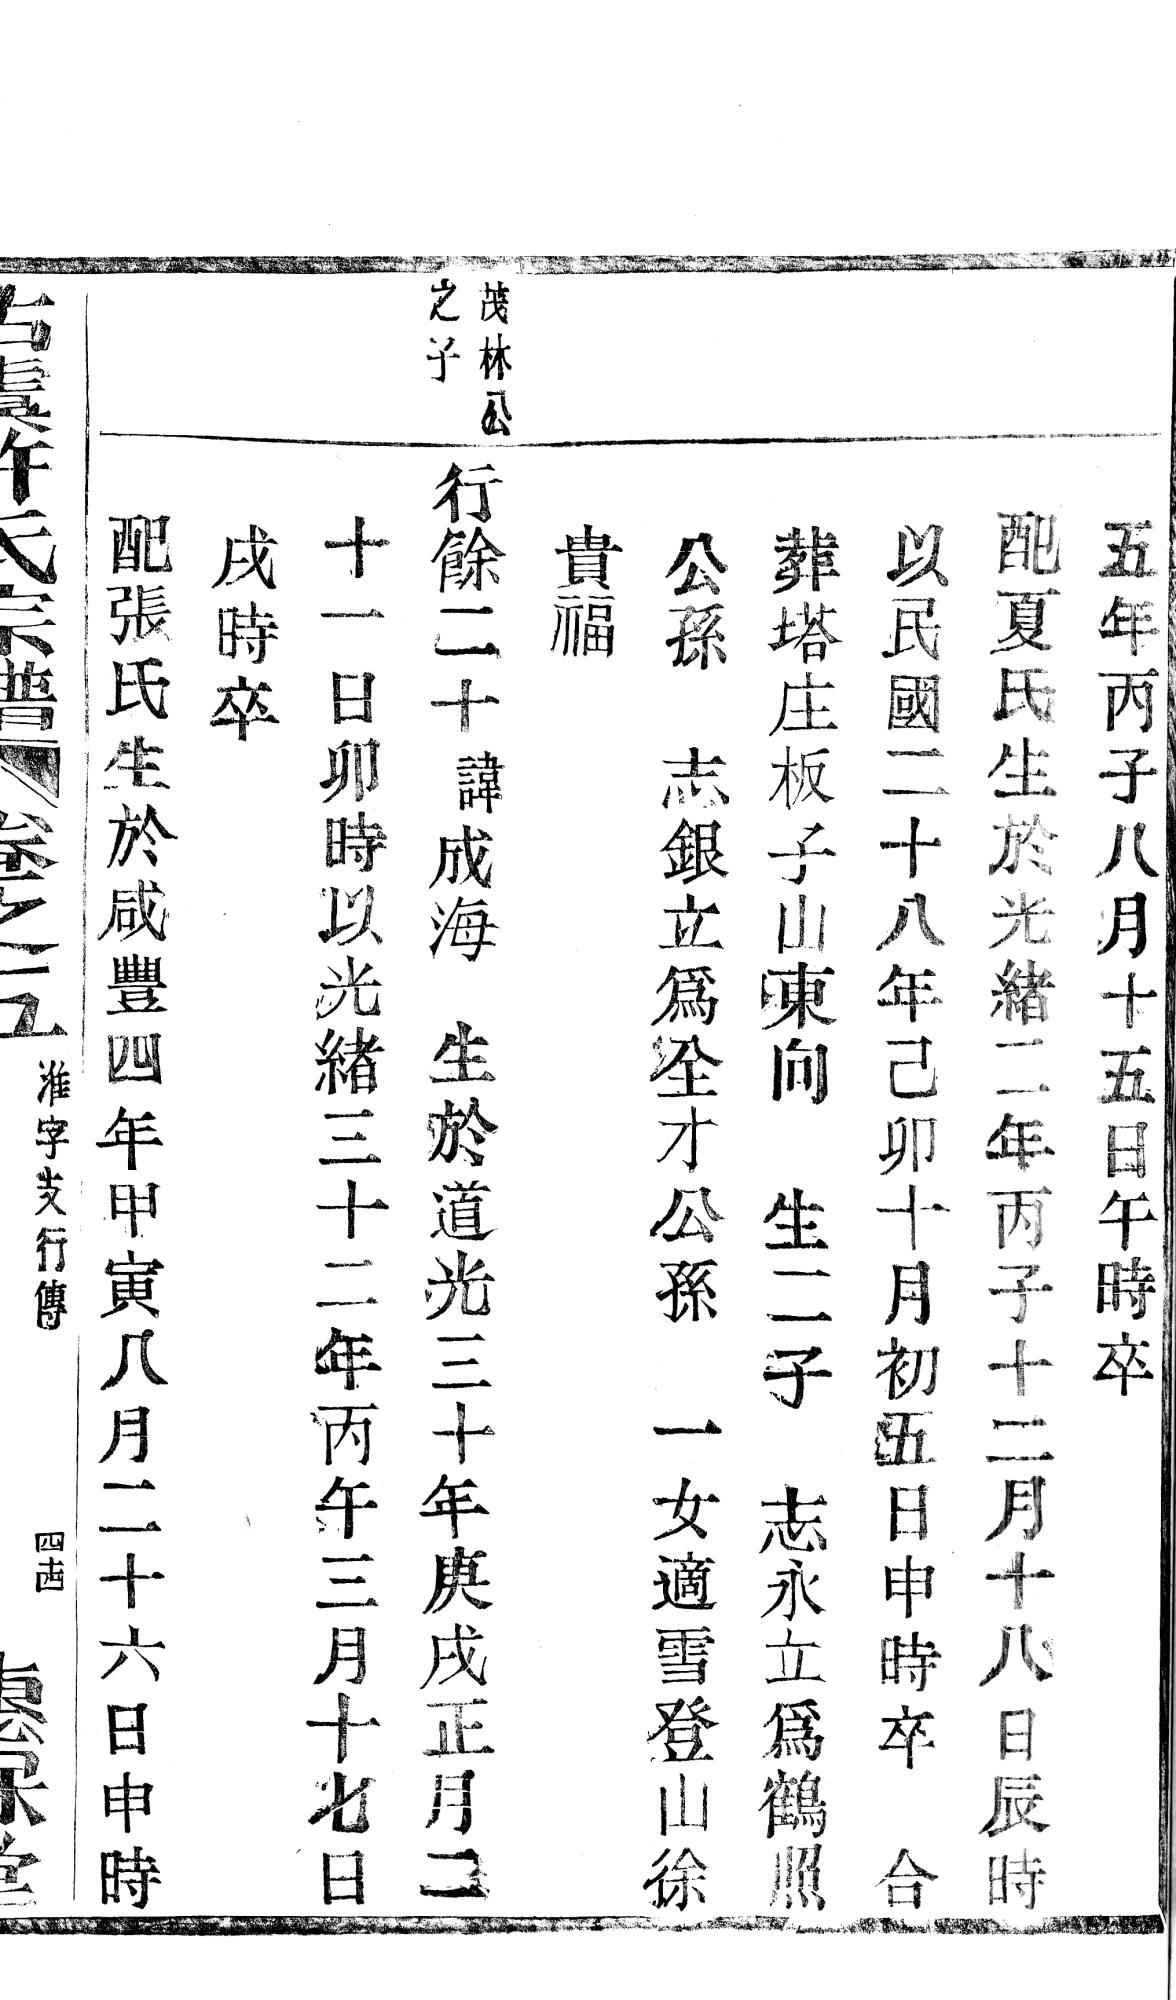 五年丙子八月十五日午時卒
配夏氏生於光緒二年丙子十二月十八日辰時
以民國二十八年己卯十月初五日申時卒　合
葬塔庄板子山東向　生二子　志永立爲鶴照
公孫　志銀立爲全才公孫　一女適雪登山徐
貴福
茂林公
之子
行餘二十　諱成海　生於道光三十年庚戌正月二
十一日卯時以光緒三十二年丙午三月十七日
戌時卒
配張氏生於咸豐四年甲寅八月二十六日申時
古虞許氏宗譜　卷之五　淮字支行傳　惇保堂